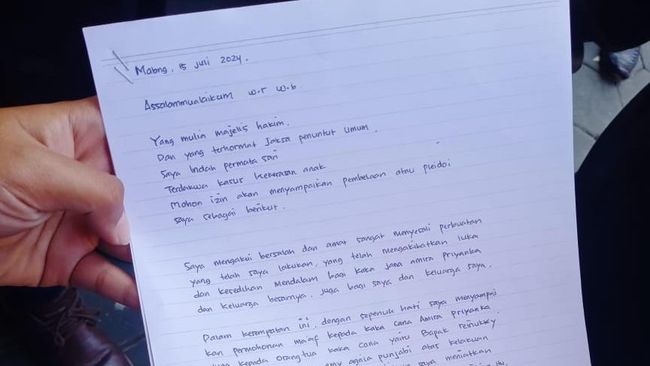 Malang, 15 Juli 2024.
Assalammualaikum w.r w.b
Yang mulia majelis hakim.
Dan yang terhormat Jaksa penuntut umum.
Saya Indah permata sari
Terdakwa kasus kekerasan anak
Mohon izin akan menyampaikan pembelaan atau pleidoi
saya sebagai berikut.
Saya mengakui bersalah dan amat sangat menyesali perbuatan
yang telah saya lakukan, yang telah mengakibatkan luka
dan kesedihan Mendalam bagi kaka Jana Amira Priyanka
dan keluarga besarnya. Juga bagi saya dan keluarga saya.
Dalam kesempatan ini, dengan sepenuh hati saya menyampai
kan permohonan maaf kepada kaka Cana Amira Priyanka
kepada orangtua kaka Cana yaitu Bapak reinukky
agnia punjabi atas kelakuan
saya